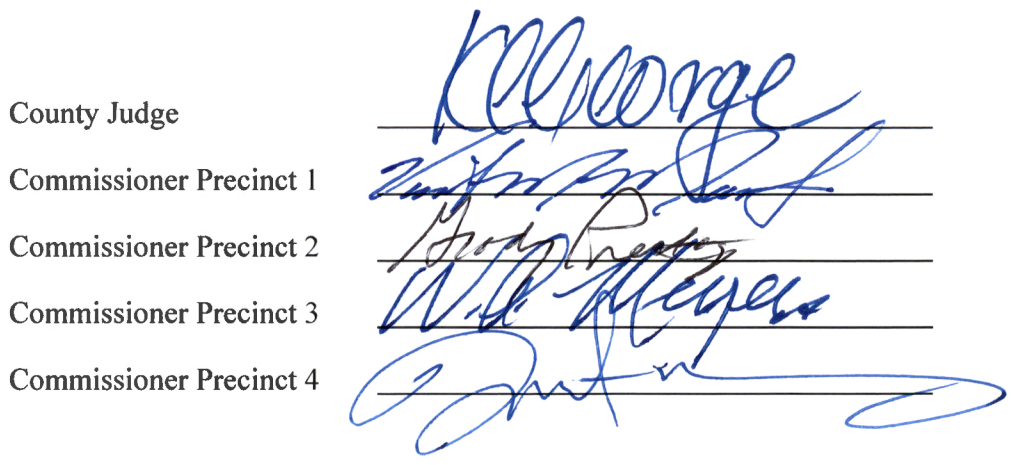 County Judge KP George
Commissioner Precinct 1
Commissioner Precinct 2 Grady Prestage
Commissioner Precinct 3 W. A. Meyers
Commissioner Precinct 4